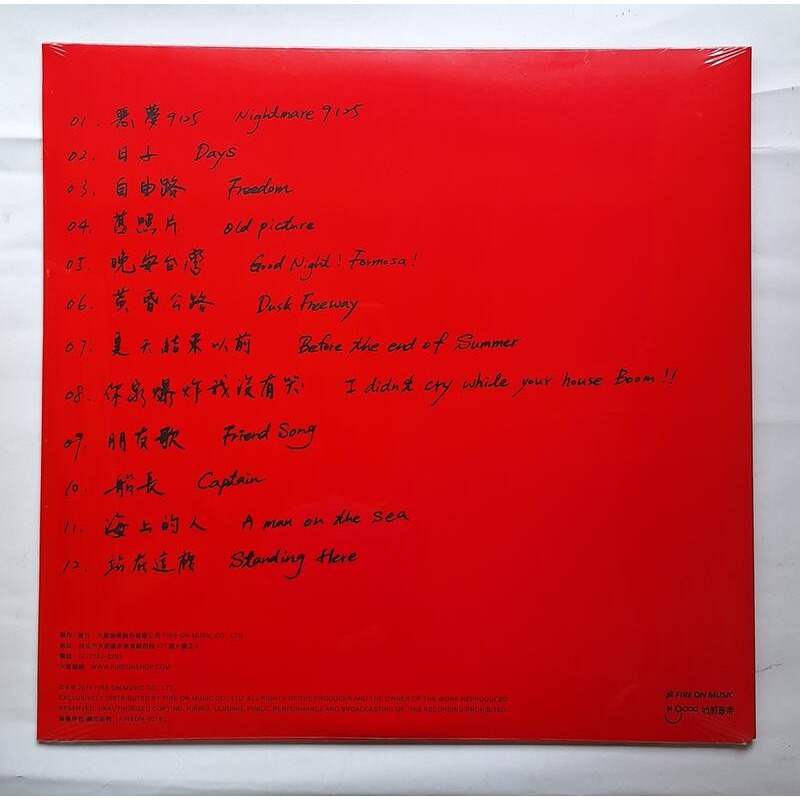 01. 惡夢9125 Nightmare 9125
02. 日子 Days
03. 自由路 Freedom
04. 舊照片 old picture
05. 晚安台灣 Good Night! Formosa!
06. 黃昏公路 Dusk Freeway
07. 夏天結束以前 Before the end of Summer
08. 你家爆炸我沒有哭 I didn't cry while your house Boom!!
09. 朋友歌 Friend Song
10. 船長 Captain
11. 海上的人 A man on the sea
12. 站在這裡 Standing Here
製作/發行: 火氣音樂股份有限公司 FIRE ON MUSIC CO., LTD.
地址:
電話: 02-2702-
WWW.FIREONSHOP.COM
2019 FIRE ON MUSIC CO., LTD.
EXCLUSIVELY DISTRIBUTED BY FIRE ON MUSIC CO., LTD. ALL RIGHTS OF THE PRODUCER AND THE OWNER OF THE WORK REPRODUCED
RESERVED. UNAUTHORIZED COPYING, HIRING, LENDING, PUBLIC PERFORMANCE AND BROADCASTING OF THIS RECORDING PROHIBITED.
版權所有 翻印必究
FIRE ON MUSIC
good